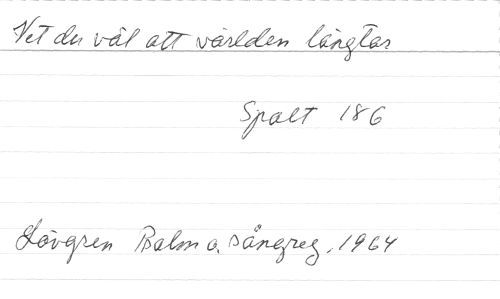 Vet du väl att världen längtar
Spalt 186
Lövgren Psalm o. sångreg. 1964